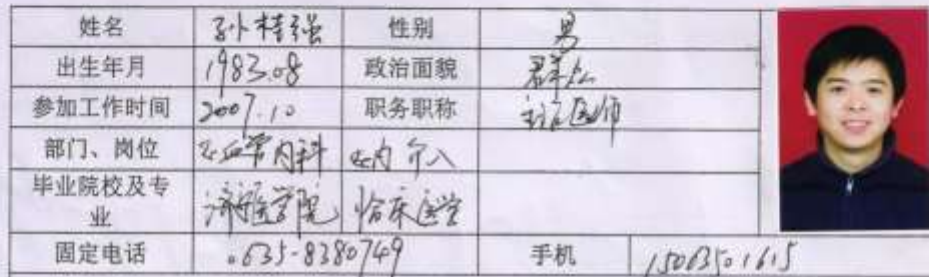 姓名 孙桂强 性别 男
出生年月 1983.08 政治面貌 群众
参加工作时间 2007.10 职务职称 主治医师
部门、岗位 心血管内科 心内介入
毕业院校及专业 济宁医学院 临床医学
固定电话 0635-8380749 手机 15063501615